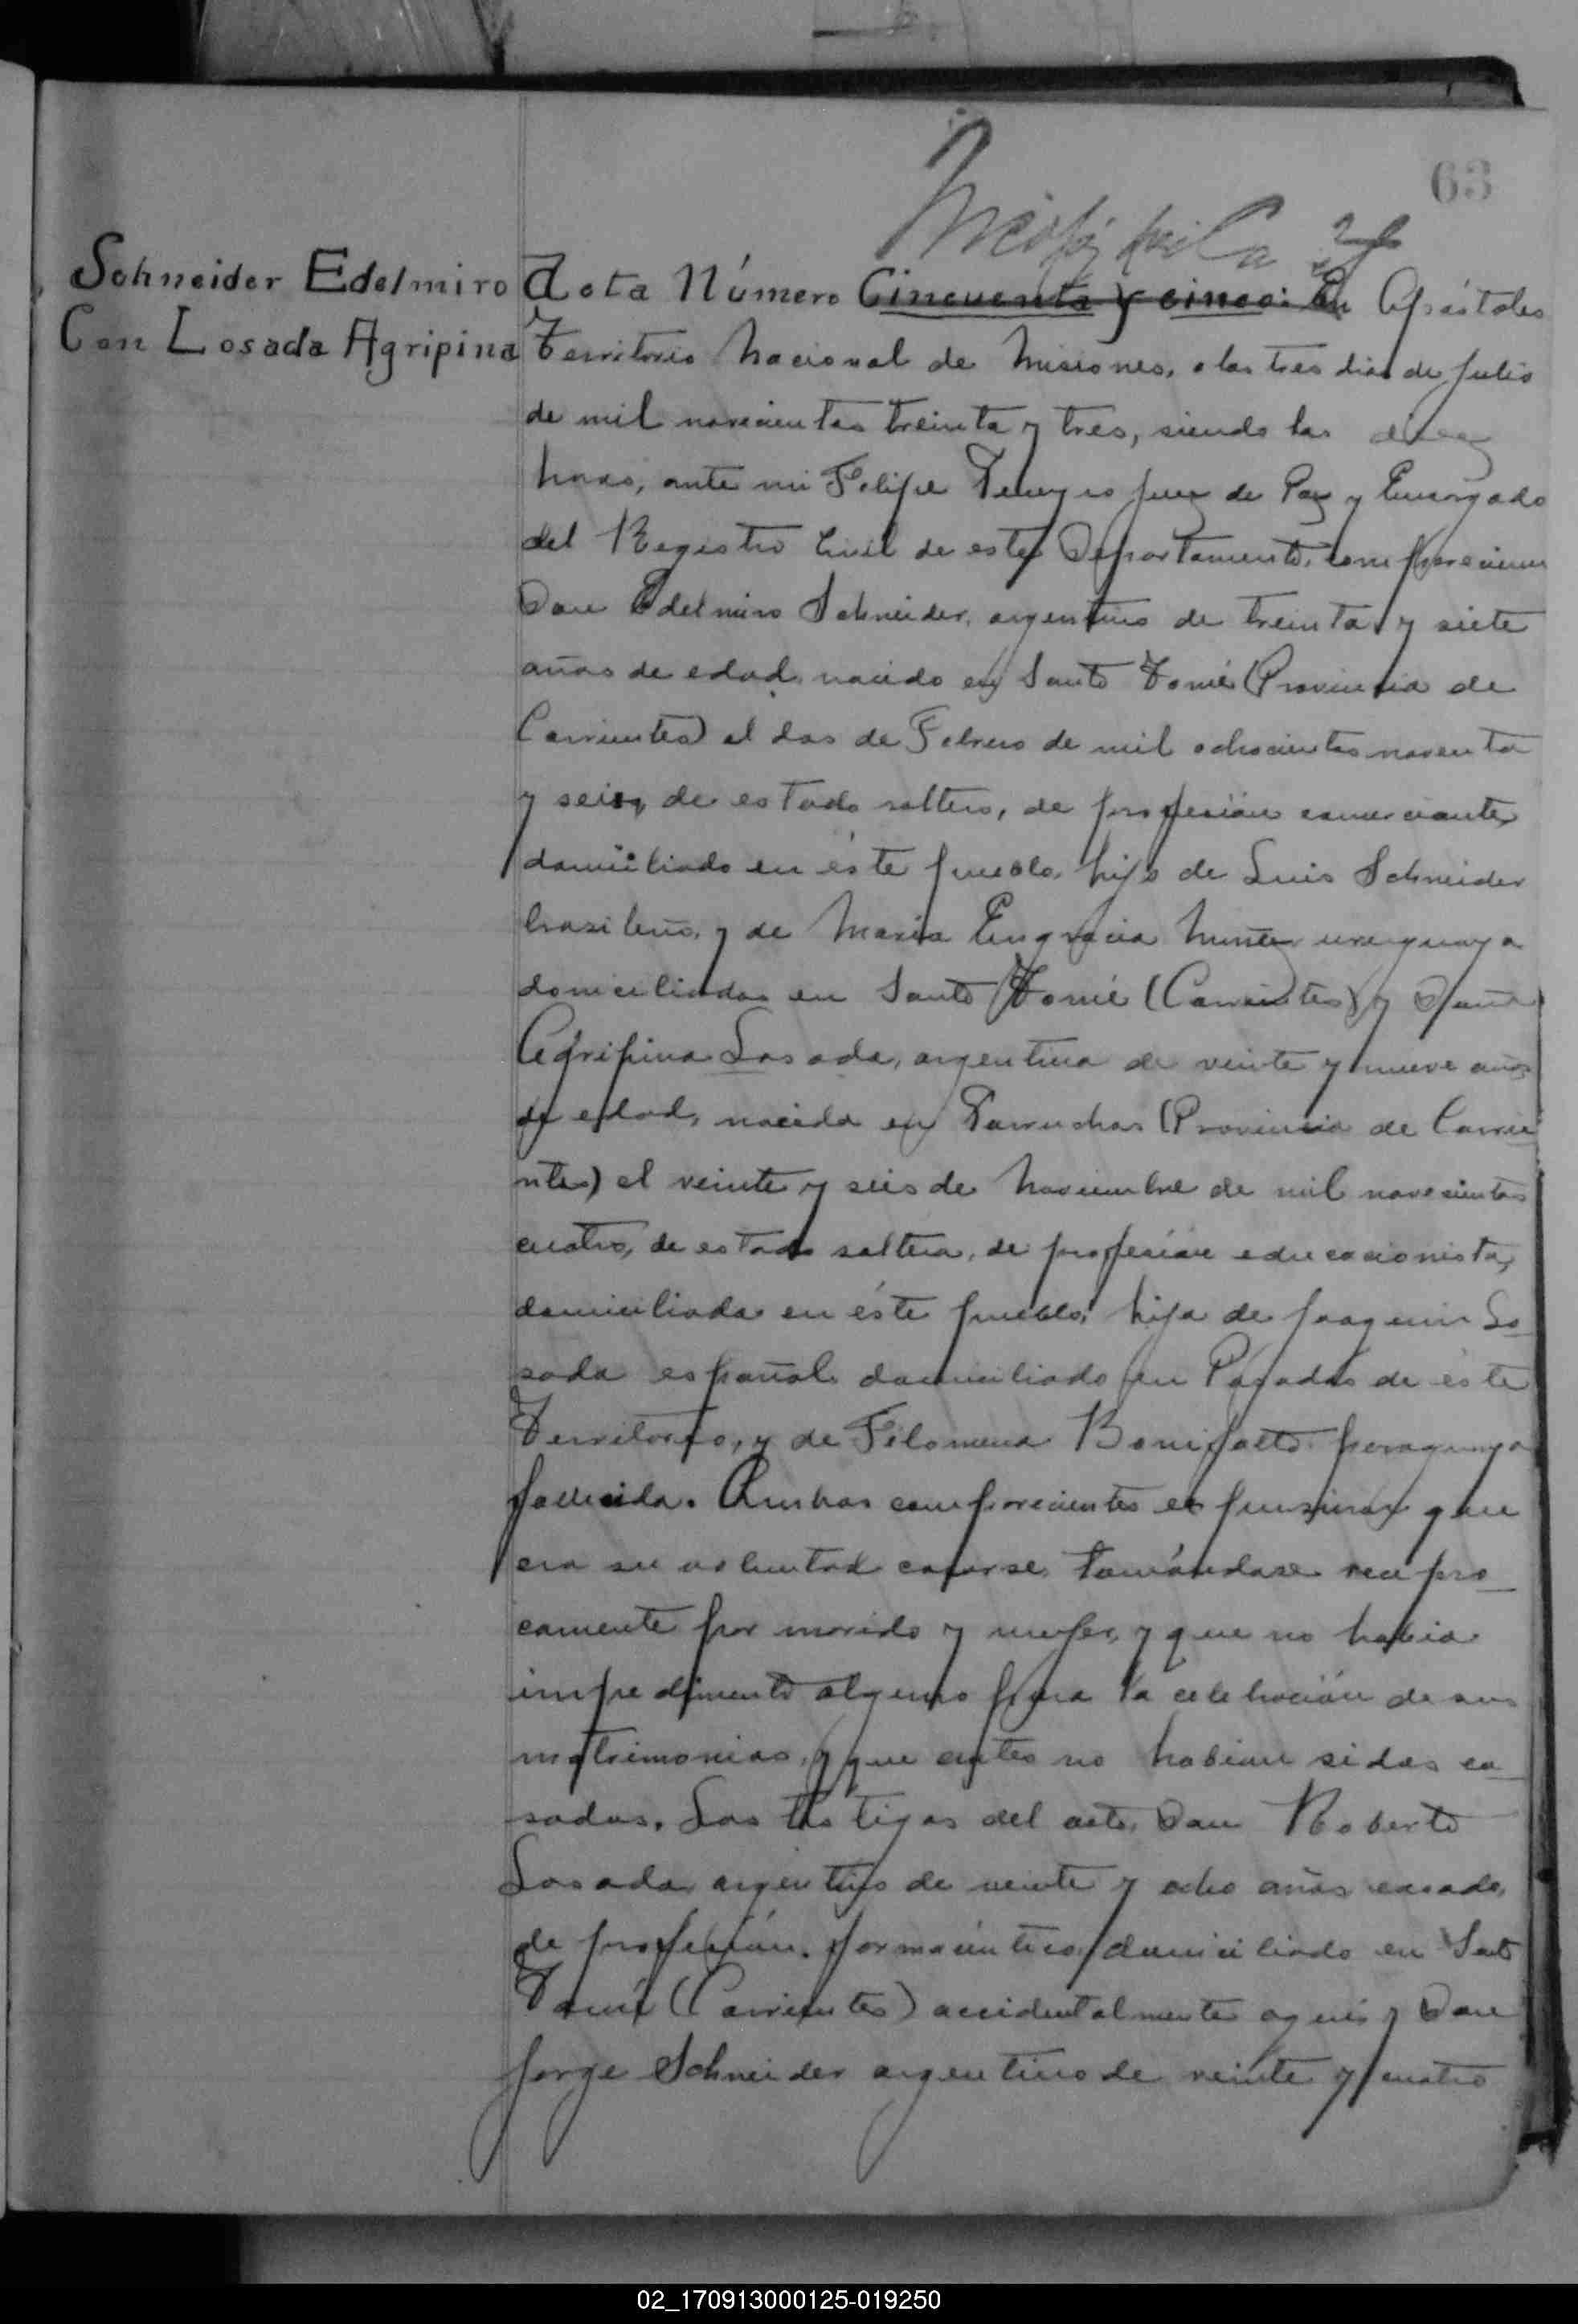 63
Schneider Edelmiro
Con Losada Agripina
Acta Número Cincuenta y cinco: En Apóstoles
Territorio Nacional de Misiones, a los tres dias de Julio
de mil novecientos treinta y tres, siendo las diez
horas, ante mi Felipe Juez de Paz y Encargado
del Registro Civil de este Departamento, comparecieron
Don Edelmiro Schneider, argentino de treinta y siete
años de edad, nacido en Santo Tomé (Provincia de
Corrientes) el dos de Febrero de mil ochocientos noventa
y seis, de estado soltero, de profesión comerciante,
domiciliado en éste pueblo, hijo de Luis Schneider
brasileño, y de Maria Engracia Nuñez uruguaya
domiciliados en Santo Tomé (Corrientes) y Doña
Agripina Losada, argentina de veinte y nueve años
de edad, nacida en Garruchos (Provincia de Corrie
ntes) el veinte y seis de Noviembre de mil novecientos
cuatro, de estado soltera, de profesión educacionista,
domiciliada en éste pueblo, hija de Joaquin Lo_
sada español domiciliado en Posadas de éste
Territorio, y de Filomena Bonifatto paraguaya
fallecida. Ambos comparecientes expusieron que
era su voluntad casarse, tomándose recipro_
camente por marido y mujer, y que no habia
impedimento alguno para la celebración de sus
matrimonios, y que antes no habian sidos ca_
sados. Los testigos del acto, Don Roberto
Losada argentino de veinte y ocho años casado,
de profesión farmacéutico, domiciliado en Santo
Tomé (Corrientes) accidentalmente aqui y Don
Jorge Schneider argentino de veinte y cuatro
02_170913000125-019250